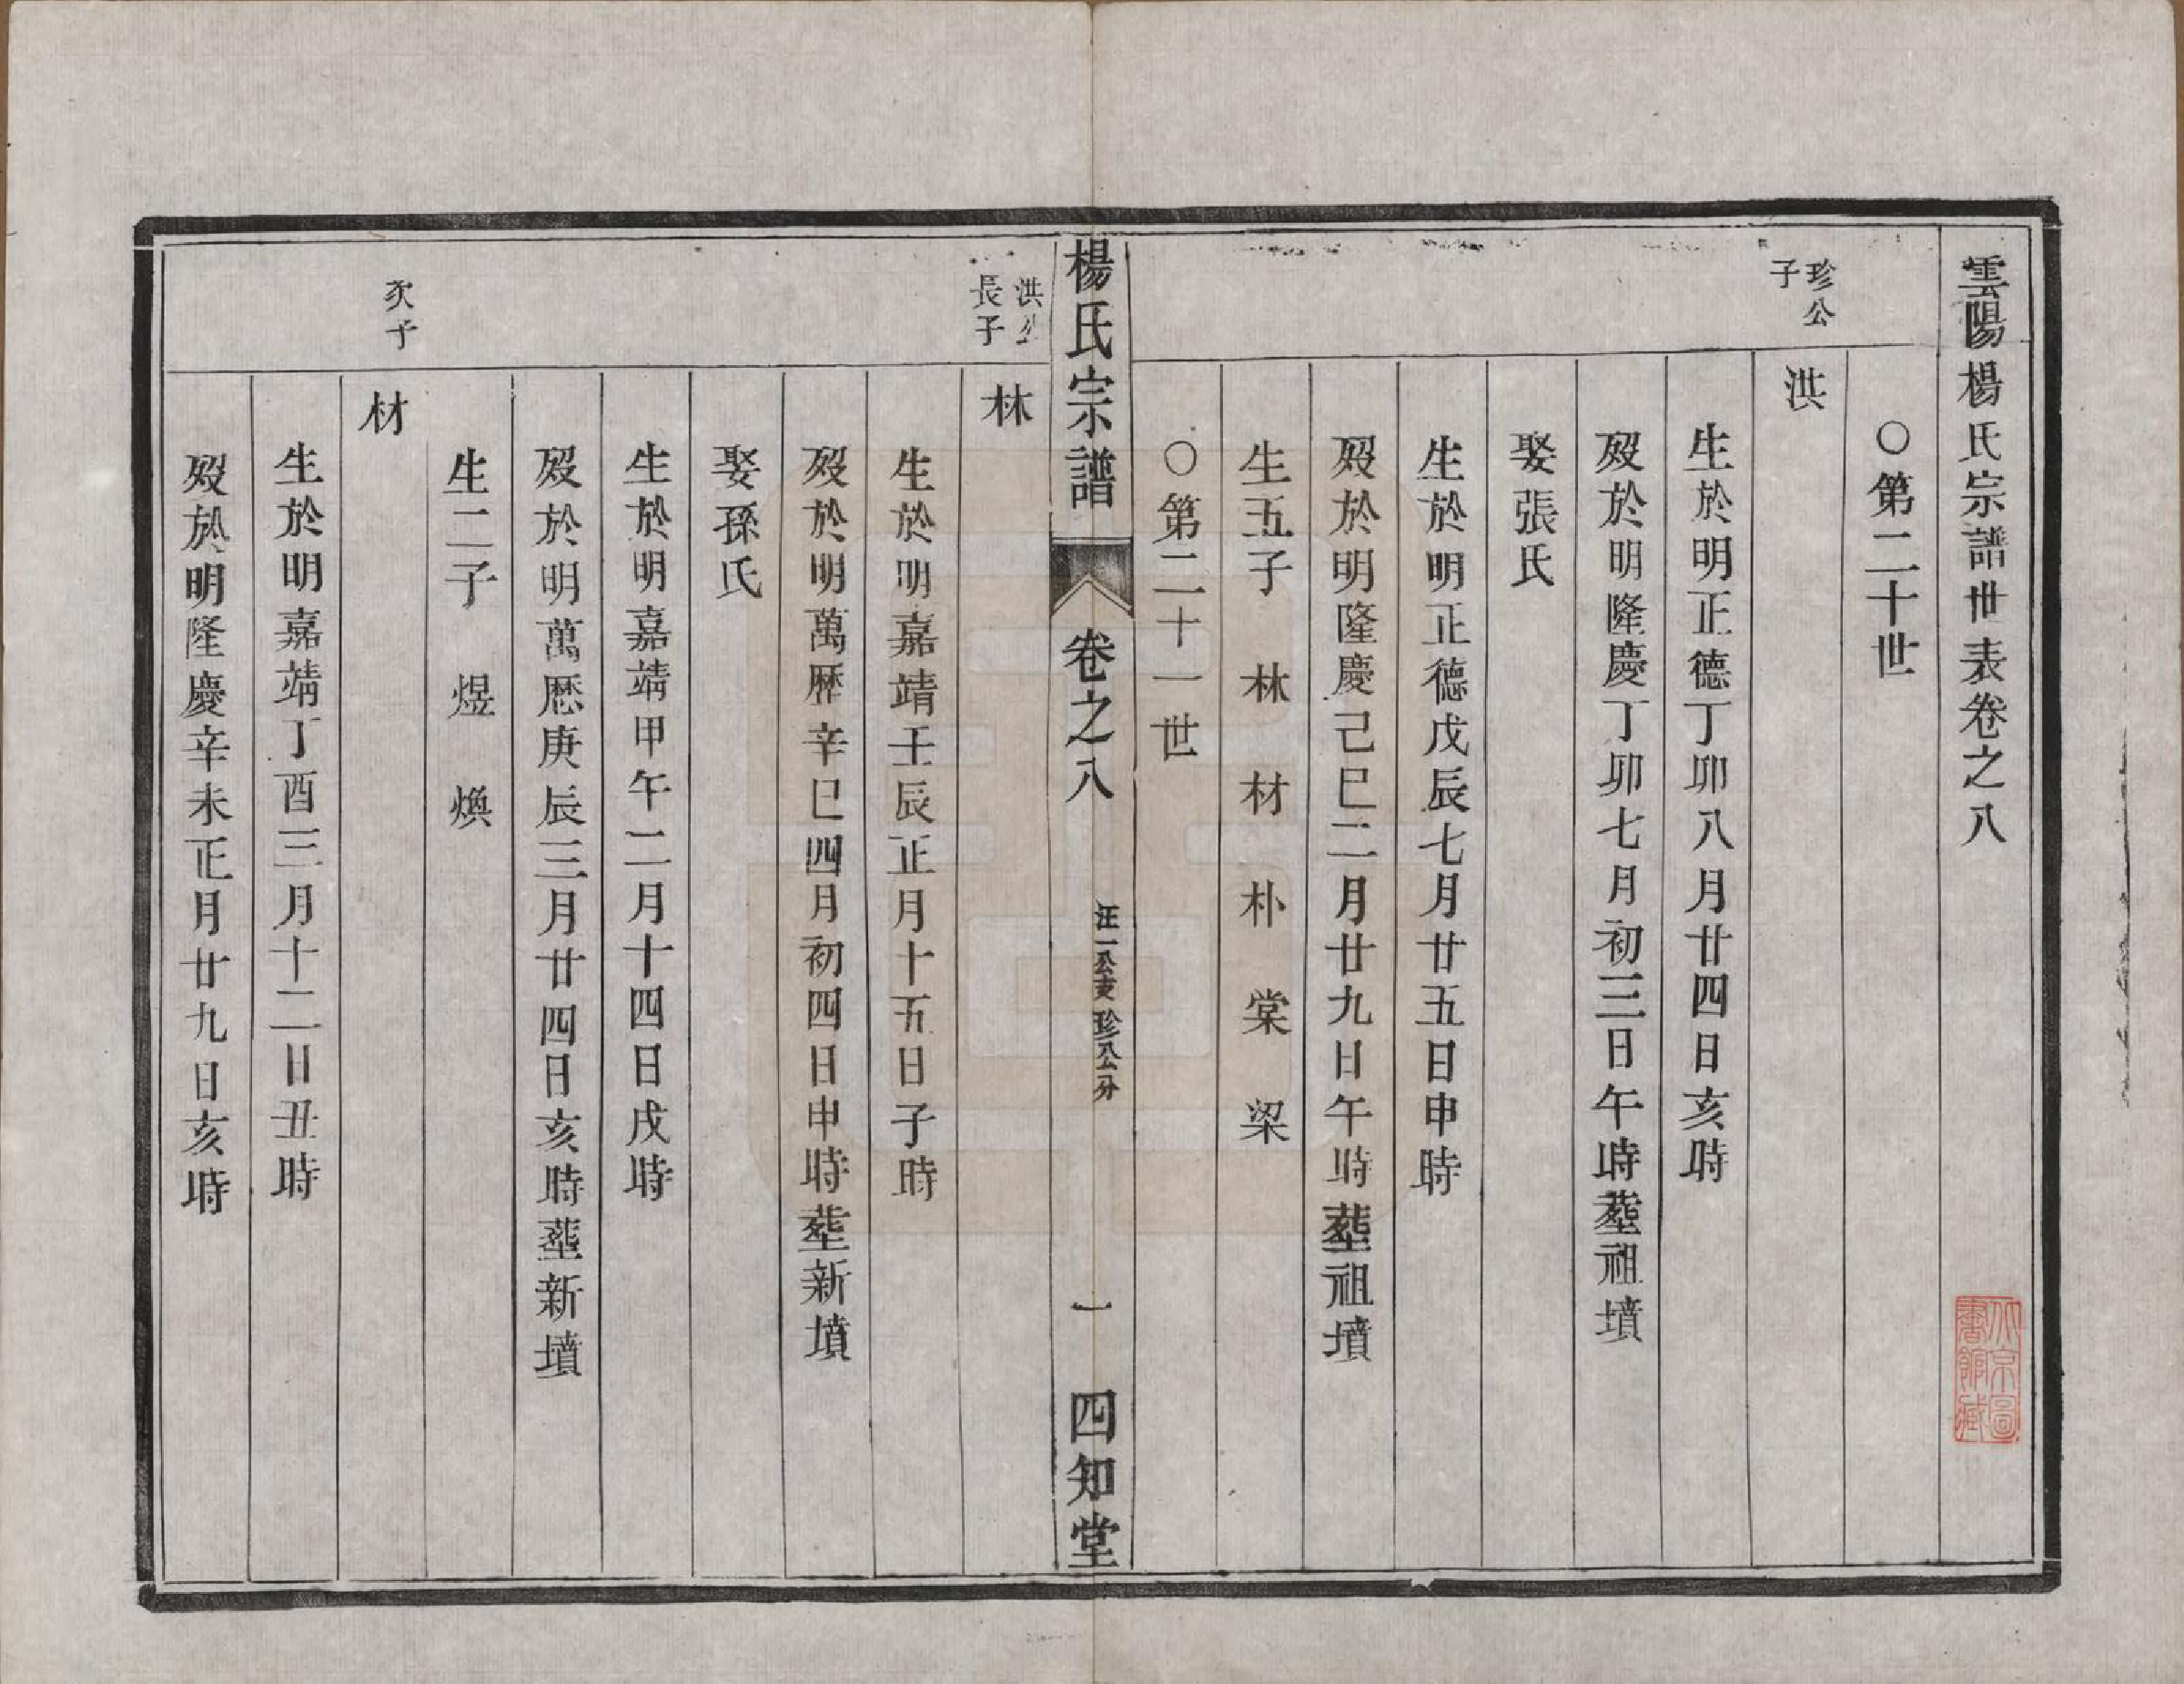 雲陽楊氏宗譜世表卷之八
〇第二十世
珍公
子
洪
生於明正德丁卯八月廿四日亥時
歿於明隆慶丁卯七月初三日午時塟祖墳
娶張氏
生於明正德戊辰七月廿五日申時
歿於明隆慶己巳二月廿九日午時塟祖墳
生五子 林 材 朴 棠 梁
〇第二十一世
楊氏宗譜 卷之八 汪一公支 珍公分 一 四知堂
洪公
長子
林
生於明嘉靖壬辰正月十五日子時
歿於明萬歷辛巳四月初四日申時塟新墳
娶孫氏
生於明嘉靖甲午二月十四日戌時
歿於明萬歷庚辰三月廿四日亥時塟新墳
生二子 煜 煥
次子
材
生於明嘉靖丁酉三月十二日丑時
歿於明隆慶辛未正月廿九日亥時
北京圖
書館藏